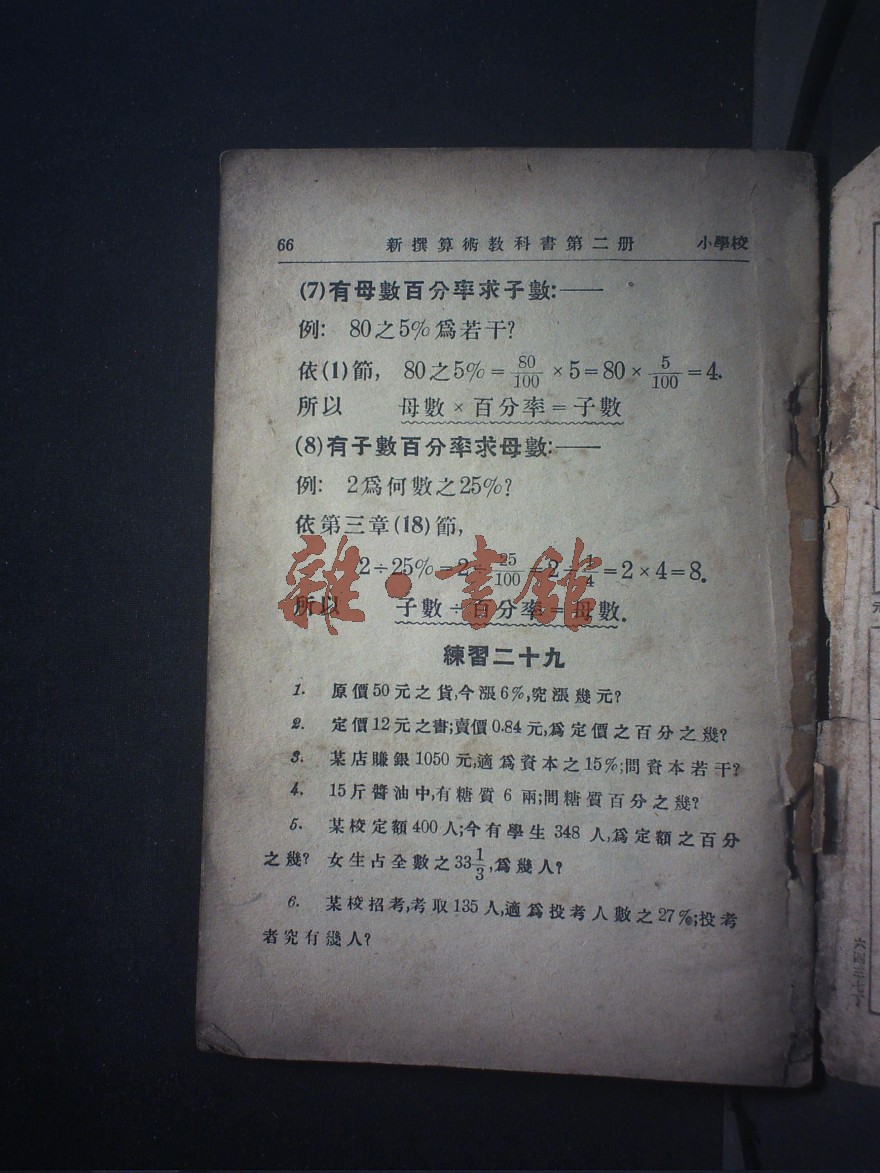 66 新撰算術教科書第二册 小學校
(7)有母數百分率求子數:——
例: 80之5%爲若干?
依(1)節, 80之5% = 80/100 × 5 = 80 × 5/100 = 4.
所以 母數 × 百分率 = 子數
(8)有子數百分率求母數:——
例: 2爲何數之25%?
依第三章(18)節,
2÷25% = 2÷ 25/100 = 2÷ 1/4 = 2×4=8.
所以 子數÷百分率=母數.
雜·書館
練習二十九
1. 原價50元之貨,今漲6%,究漲幾元?
2. 定價12元之書;賣價0.84元,爲定價之百分之幾?
3. 某店賺銀1050元,適爲資本之15%;問資本若干?
4. 15斤醬油中,有糖質6兩;問糖質百分之幾?
5. 某校定額400人;今有學生348人,爲定額之百分
之幾? 女生占全數之33 1/3,爲幾人?
6. 某校招考,考取135人,適爲投考人數之27%;投考
者究有幾人?